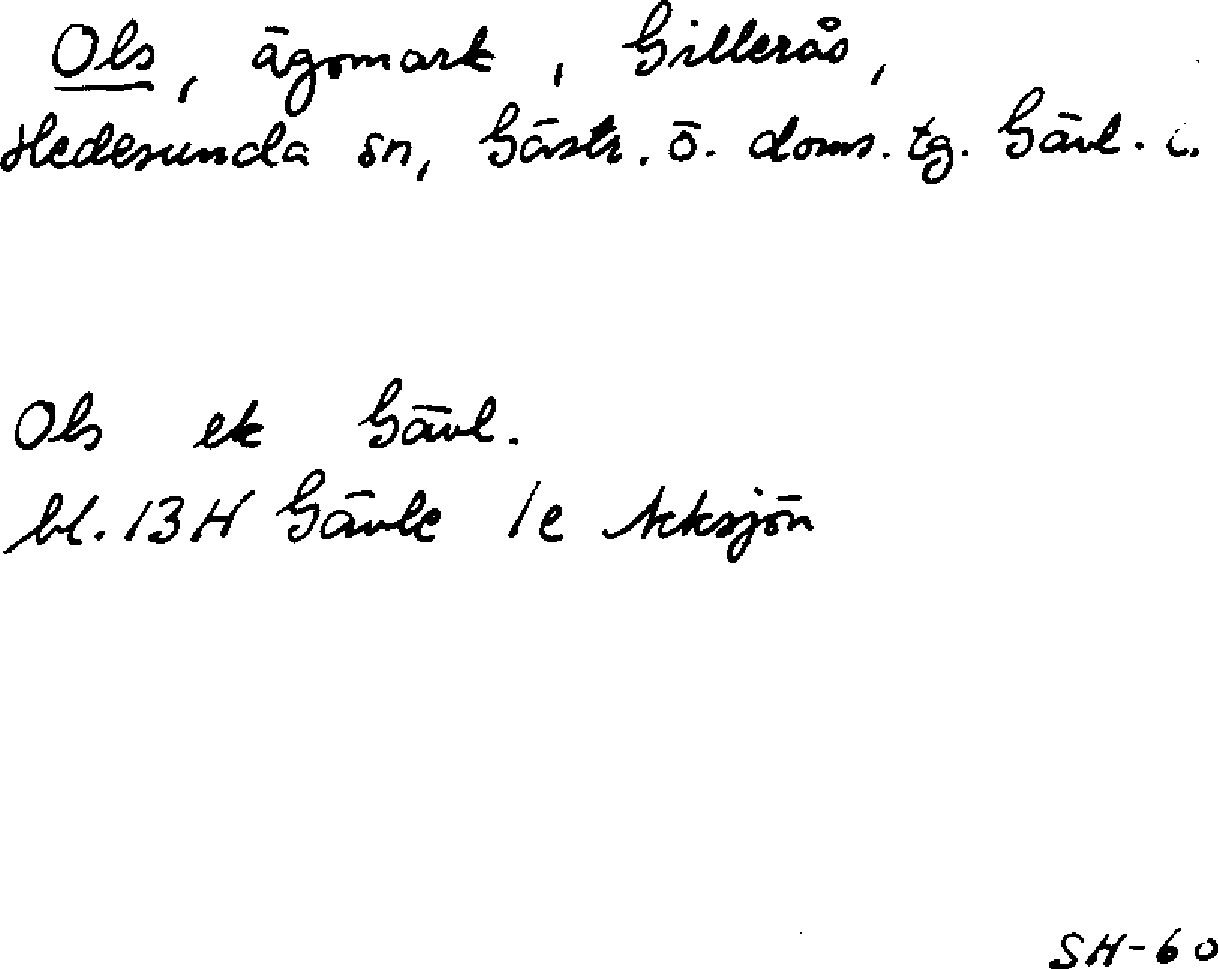 Ols, ägomark, Gillerås,
Hedesunda sn, Gästr. ö. doms. tg. Gävl.
Ols ek Gävl.
bl. 13H Gävle 1e Acksjön
SH-60